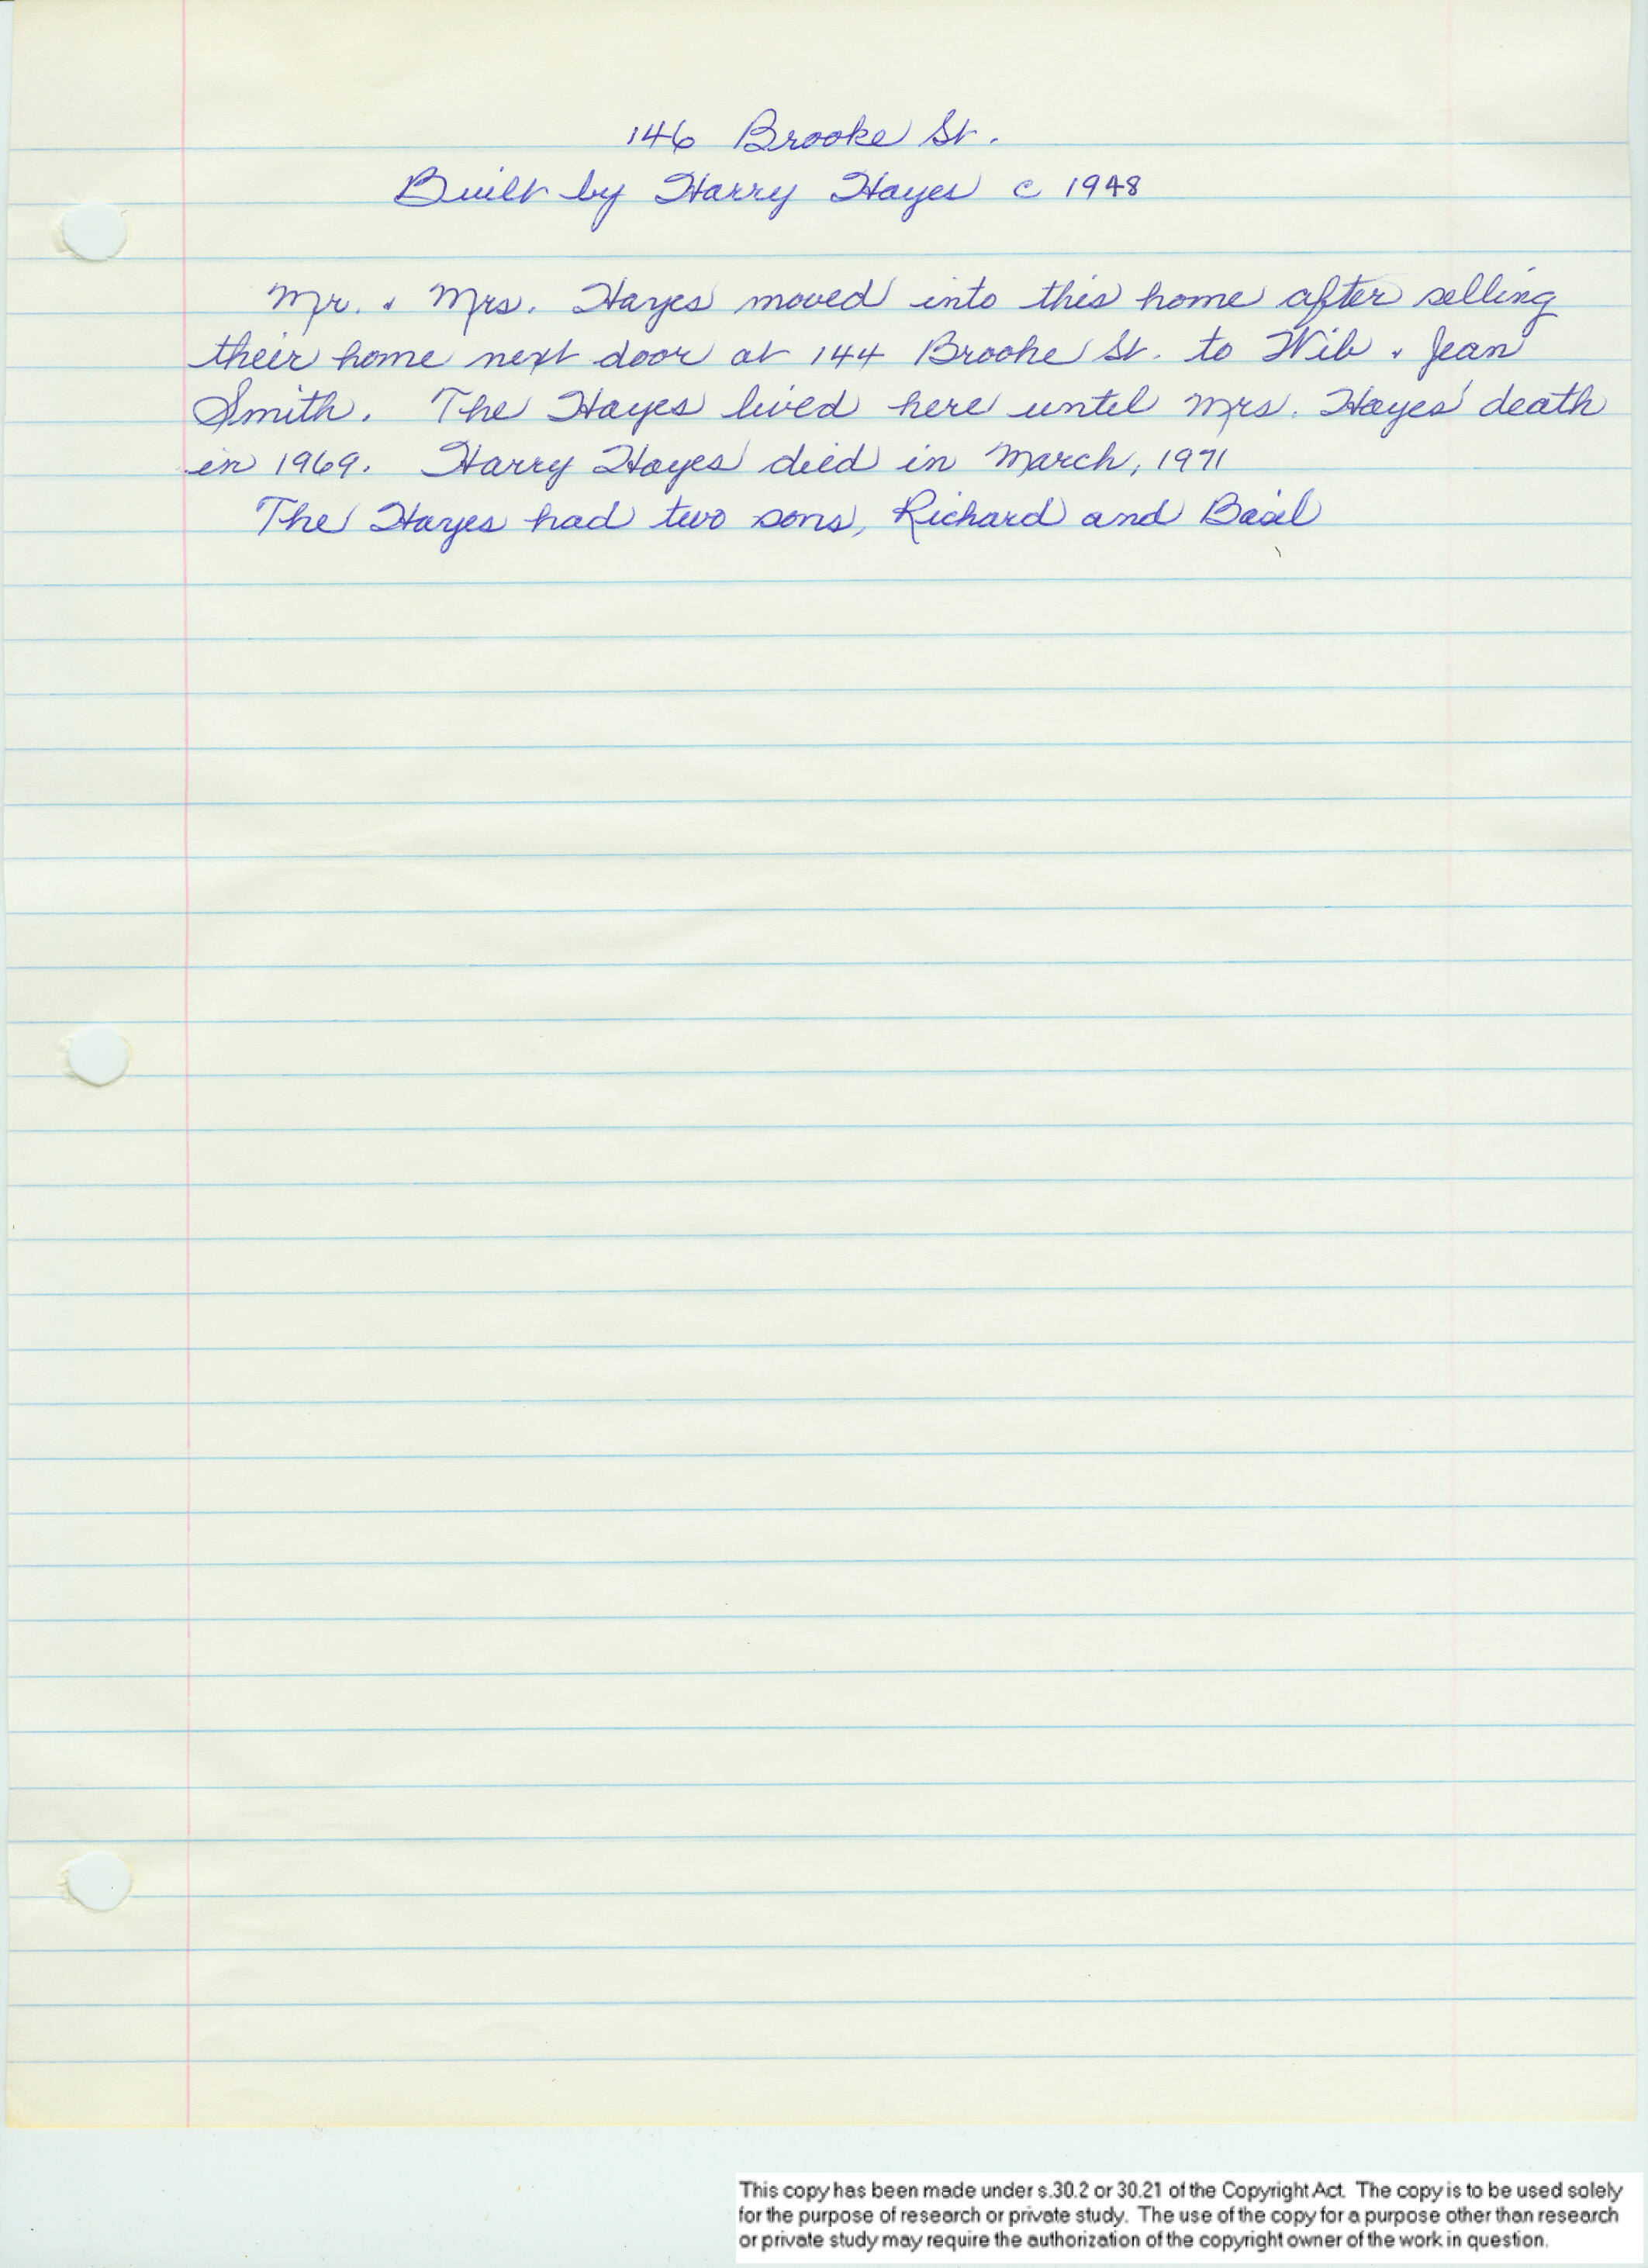 146 Brooke St.
Built by Harry Hayes c 1948
Mr. & Mrs. Hayes moved into this home after selling
their home next door at 144 Brooke St. to Wib & Jean
Smith. The Hayes lived here until Mrs. Hayes' death
in 1969. Harry Hayes died in March, 1971
The Hayes had two sons, Richard and Basil
This copy has been made under s.30.2 or 30.21 of the Copyright Act. The copy is to be used solely
for the purpose of research or private study. The use of the copy for a purpose other than research
or private study may require the authorization of the copyright owner of the work in question.